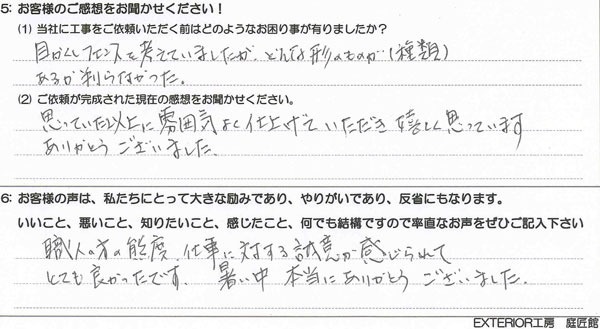 5: お客様のご感想をお聞かせください！
(1) 当社に工事をご依頼いただく前はどのようなお困り事が有りましたか？
目かくしフェンスを考えていましたが、どんな形のものが（種類）
あるか判らなかった。
(2) ご依頼が完成された現在の感想をお聞かせください。
思っていた以上に雰囲気よく仕上げていただき嬉しく思っています
ありがとうございました。
6: お客様の声は、私たちにとって大きな励みであり、やりがいであり、反省にもなります。
いいこと、悪いこと、知りたいこと、感じたこと、何でも結構ですので率直なお声をぜひご記入下さい
職人の方の態度、仕事に対する誠意が感じられて
とても良かったです。暑い中 本当にありがとうございました。
EXTERIOR工房 庭匠館